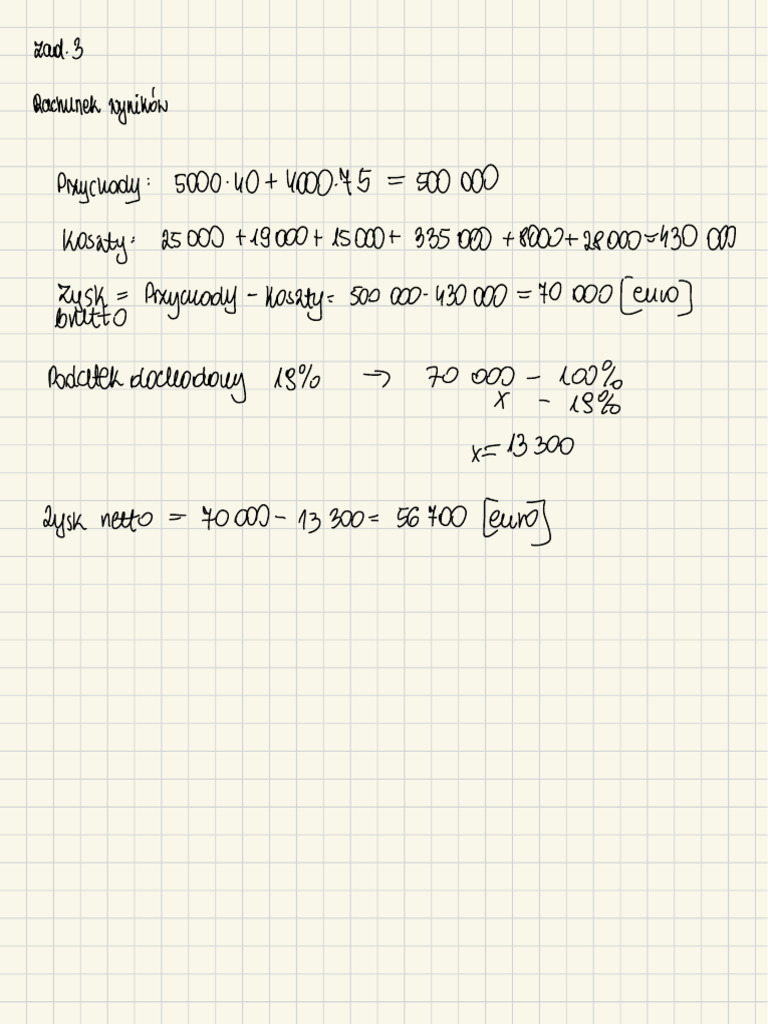 zad. 3
Rachunek wyników
Przychody: 5000·40 + 4000·75 = 500 000
Koszty: 25 000 + 19 000 + 15 000 + 335 000 + 8000 + 28 000 = 430 000
Zysk = Przychody - Koszty = 500 000 - 430 000 = 70 000 [euro]
brutto
Podatek dochodowy 19% → 70 000 - 100%
x - 19%
x = 13 300
Zysk netto = 70 000 - 13 300 = 56 700 [euro]